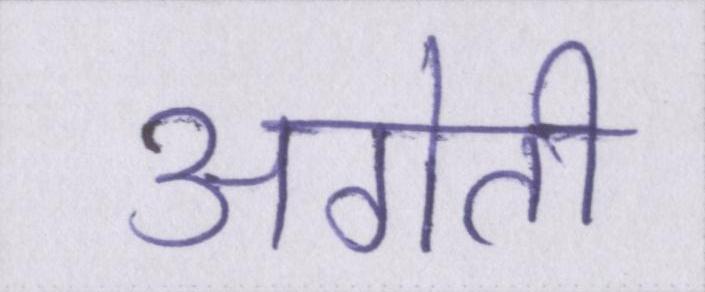 अगेती